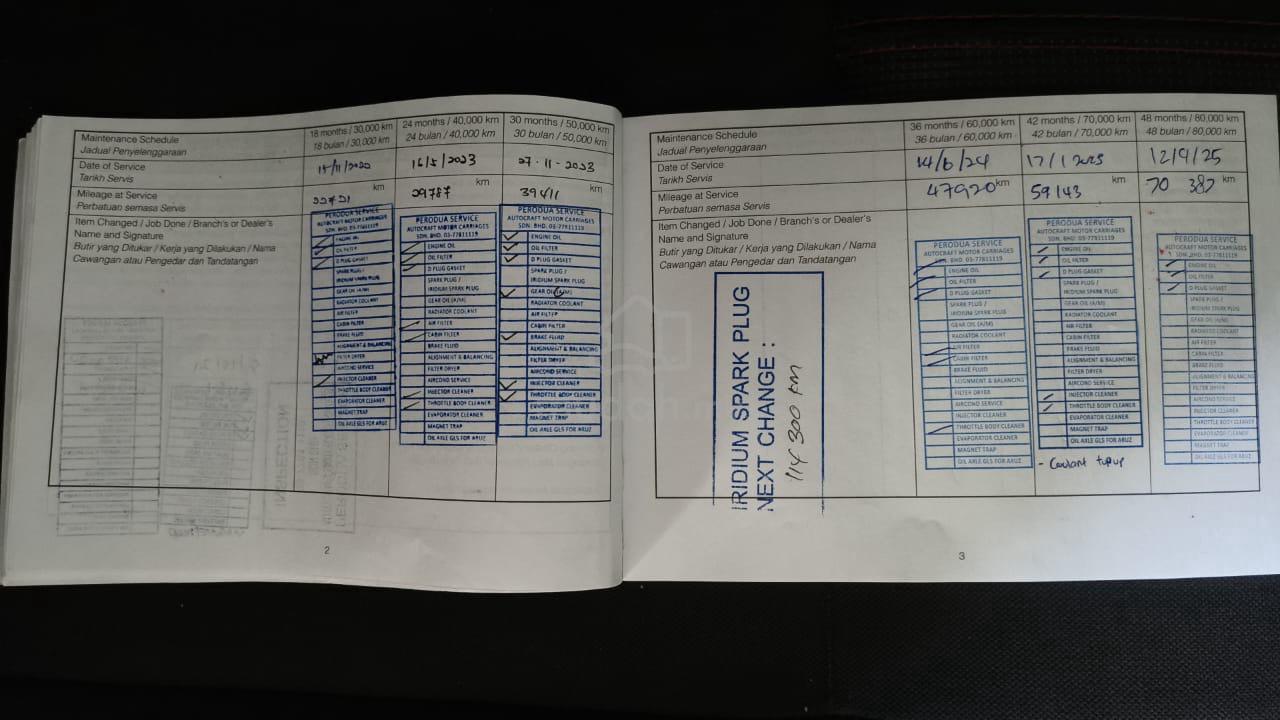 Maintenance Schedule
Jadual Penyelenggaraan
18 months / 30,000 km
18 bulan / 30,000 km
24 months / 40,000 km
24 bulan / 40,000 km
30 months / 50,000 km
30 bulan / 50,000 km
Date of Service
Tarikh Servis
16/5/2023
27-11-2023
Mileage at Service
Perbatuan semasa Servis
km
29787 km
39411 km
Item Changed / Job Done / Branch's or Dealer's
Name and Signature
Butir yang Ditukar / Kerja yang Dilakukan / Nama
Cawangan atau Pengedar dan Tandatangan
PERODUA SERVICE
AUTOCRAFT MOTOR CARRIAGES
SDN. BHD. 03-77811119
ENGINE OIL
OIL FILTER
D PLUG GASKET
SPARK PLUG /
IRIDIUM SPARK PLUG
GEAR OIL (A/M)
RADIATOR COOLANT
AIR FILTER
CABIN FILTER
BRAKE FLUID
ALIGNMENT & BALANCING
FILTER DRYER
AIRCOND SERVICE
INJECTOR CLEANER
THROTTLE BODY CLEANER
EVAPORATOR CLEANER
MAGNET TRAP
OIL AXLE GLS FOR ARUZ
PERODUA SERVICE
AUTOCRAFT MOTOR CARRIAGES
SDN. BHD. 03-77811119
ENGINE OIL
OIL FILTER
D PLUG GASKET
SPARK PLUG /
IRIDIUM SPARK PLUG
GEAR OIL (A/M)
RADIATOR COOLANT
AIR FILTER
CABIN FILTER
BRAKE FLUID
ALIGNMENT & BALANCING
FILTER DRYER
AIRCOND SERVICE
INJECTOR CLEANER
THROTTLE BODY CLEANER
EVAPORATOR CLEANER
MAGNET TRAP
OIL AXLE GLS FOR ARUZ
PERODUA SERVICE
AUTOCRAFT MOTOR CARRIAGES
SDN. BHD. 03-77811119
ENGINE OIL
OIL FILTER
D PLUG GASKET
SPARK PLUG /
IRIDIUM SPARK PLUG
GEAR OIL (A/M)
RADIATOR COOLANT
AIR FILTER
CABIN FILTER
BRAKE FLUID
ALIGNMENT & BALANCING
FILTER DRYER
AIRCOND SERVICE
INJECTOR CLEANER
THROTTLE BODY CLEANER
EVAPORATOR CLEANER
MAGNET TRAP
OIL AXLE GLS FOR ARUZ
2
Maintenance Schedule
Jadual Penyelenggaraan
36 months / 60,000 km
36 bulan / 60,000 km
42 months / 70,000 km
42 bulan / 70,000 km
48 months / 80,000 km
48 bulan / 80,000 km
Date of Service
Tarikh Servis
14/6/24
17/1/2025
12/9/25
Mileage at Service
Perbatuan semasa Servis
47920 km
59143 km
70 387 km
Item Changed / Job Done / Branch's or Dealer's
Name and Signature
Butir yang Ditukar / Kerja yang Dilakukan / Nama
Cawangan atau Pengedar dan Tandatangan
IRIDIUM SPARK PLUG
NEXT CHANGE :
114 300 km
PERODUA SERVICE
AUTOCRAFT MOTOR CARRIAGES
SDN. BHD. 03-77811119
ENGINE OIL
OIL FILTER
D PLUG GASKET
SPARK PLUG /
IRIDIUM SPARK PLUG
GEAR OIL (A/M)
RADIATOR COOLANT
AIR FILTER
CABIN FILTER
BRAKE FLUID
ALIGNMENT & BALANCING
FILTER DRYER
AIRCOND SERVICE
INJECTOR CLEANER
THROTTLE BODY CLEANER
EVAPORATOR CLEANER
MAGNET TRAP
OIL AXLE GLS FOR ARUZ
PERODUA SERVICE
AUTOCRAFT MOTOR CARRIAGES
SDN. BHD. 03-77811119
ENGINE OIL
OIL FILTER
D PLUG GASKET
SPARK PLUG /
IRIDIUM SPARK PLUG
GEAR OIL (A/M)
RADIATOR COOLANT
AIR FILTER
CABIN FILTER
BRAKE FLUID
ALIGNMENT & BALANCING
FILTER DRYER
AIRCOND SERVICE
INJECTOR CLEANER
THROTTLE BODY CLEANER
EVAPORATOR CLEANER
MAGNET TRAP
OIL AXLE GLS FOR ARUZ
- Coolant topup
PERODUA SERVICE
AUTOCRAFT MOTOR CARRIAGES
SDN. BHD. 03-77811119
ENGINE OIL
OIL FILTER
D PLUG GASKET
SPARK PLUG /
IRIDIUM SPARK PLUG
GEAR OIL (A/M)
RADIATOR COOLANT
AIR FILTER
CABIN FILTER
BRAKE FLUID
ALIGNMENT & BALANCING
FILTER DRYER
AIRCOND SERVICE
INJECTOR CLEANER
THROTTLE BODY CLEANER
EVAPORATOR CLEANER
MAGNET TRAP
OIL AXLE GLS FOR ARUZ
3